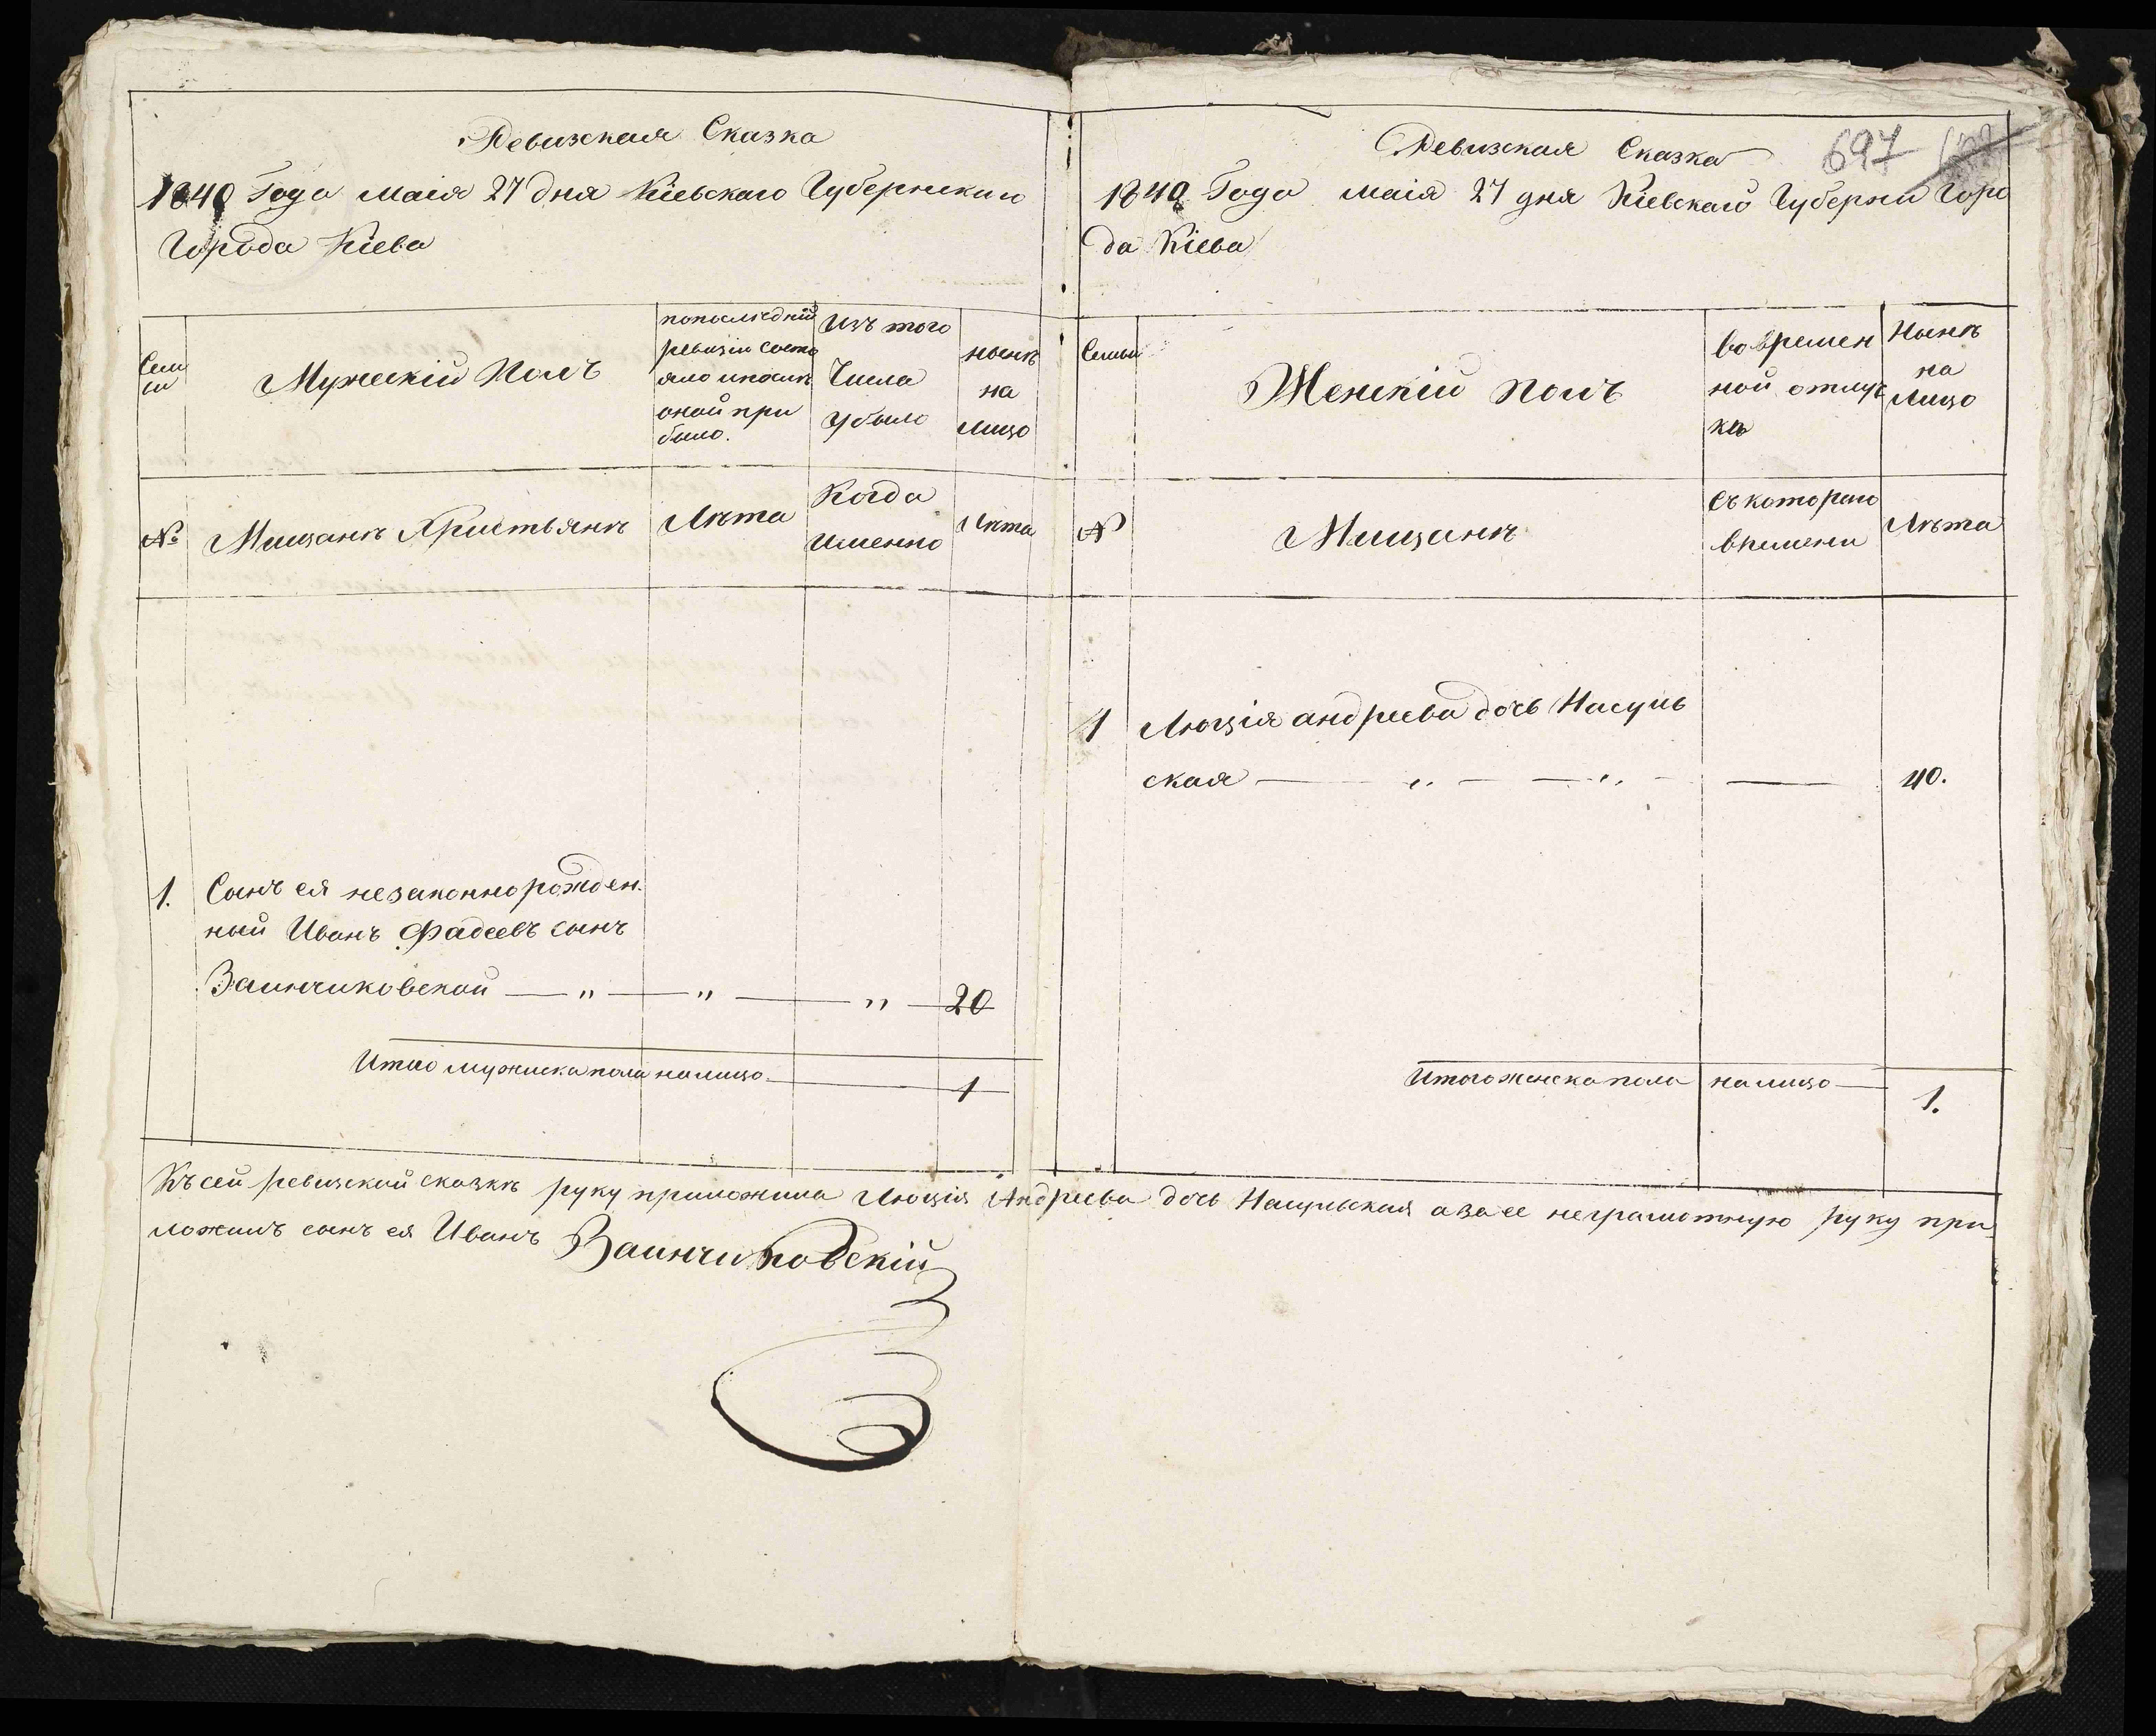 Ревизская Сказка
1840 Года маія 27 дня Кіевскаго Губернскаго
Города Кіева
Семи
Мужескій Полъ
попоследній
ревизіи состо
яло ипослѣ
оной при
было.
Изъ того
Числа
Убыло
нынѣ
на
лицо
№
Мищанъ Христьянъ
Лѣта
Когда
именно
Лѣта
1. Сынъ ея незаконнорожден.
ный Иванъ Фадеевъ сынъ
Заинчиковской — „ — „ — „ — 20
Итого мужеска пола налицо — 1
Ревизская Сказка
697
1840 Года маія 27 дня Кіевскаго Губерни Горо
да Кіева
Семьи
Женскій полъ
во времен
ной отлуч
кѣ
Нынѣ
на
Лицо
№
Мищанъ
Съ котораго
времени
Лѣта
1 Люція андреева дочь Насуль
ская — „ — — „ — — 40.
Итого женска пола налицо — 1.
Къ сей ревизской сказкѣ руку приложила Люція Андреева дочь Насульская а за ее неграмотную руку при
ложилъ сынъ ея Иванъ Заинчиковскій